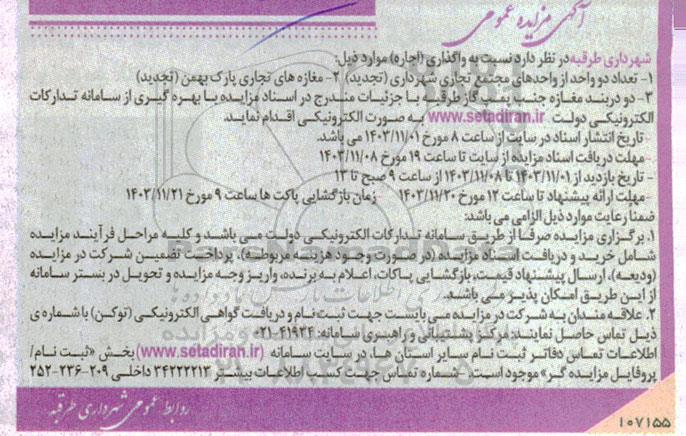 آگهی مزایده عمومی
شهرداری طرقبه در نظر دارد نسبت به واگذاری (اجاره) موارد ذیل:
۱- تعداد دو واحد از واحدهای مجتمع تجاری شهرداری (تجدید) ۲- مغازه های تجاری پارک بهمن (تجدید)
۳- دو دربند مغازه جنب پمپ گاز طرقبه با جزئیات مندرج در اسناد مزایده با بهره گیری از سامانه تدارکات
الکترونیکی دولت www.setadiran.ir به صورت الکترونیکی اقدام نماید.
- تاریخ انتشار اسناد در سایت از ساعت ۸ مورخ ۱۴۰۳/۱۱/۰۱ می باشد.
- مهلت دریافت اسناد مزایده از سایت تا ساعت ۱۹ مورخ ۱۴۰۳/۱۱/۰۸
- تاریخ بازدید از ۱۴۰۳/۱۱/۰۱ تا ۱۴۰۳/۱۱/۰۸ از ساعت ۹ صبح تا ۱۳
- مهلت ارائه پیشنهاد تا ساعت ۱۲ مورخ ۱۴۰۳/۱۱/۲۰ زمان بازگشایی پاکت ها ساعت ۹ مورخ ۱۴۰۳/۱۱/۲۱
ضمنا رعایت موارد ذیل الزامی می باشد:
۱. برگزاری مزایده صرفا از طریق سامانه تدارکات الکترونیکی دولت می باشد و کلیه مراحل فرآیند مزایده
شامل خرید و دریافت اسناد مزایده (در صورت وجود هزینه مربوطه)، پرداخت تضمین شرکت در مزایده
(ودیعه)، ارسال پیشنهاد قیمت، بازگشایی پاکات، اعلام به برنده، واریز وجه مزایده و تحویل در بستر سامانه
از این طریق امکان پذیر می باشد.
۲. علاقه مندان به شرکت در مزایده می بایست جهت ثبت نام و دریافت گواهی الکترونیکی (توکن) با شماره ی
ذیل تماس حاصل نمایند: مرکز پشتیبانی و راهبری سامانه: ۴۱۹۳۴-۰۲۱
اطلاعات تماس دفاتر ثبت نام سایر استان ها، در سایت سامانه (www.setadiran.ir) بخش «ثبت نام/
پروفایل مزایده گر» موجود است. - شماره تماس جهت کسب اطلاعات بیشتر ۳۴۲۲۲۲۱۳ داخلی ۲۰۹-۲۳۶-۲۵۲
روابط عمومی شهرداری طرقبه
۱۰۷۱۵۵